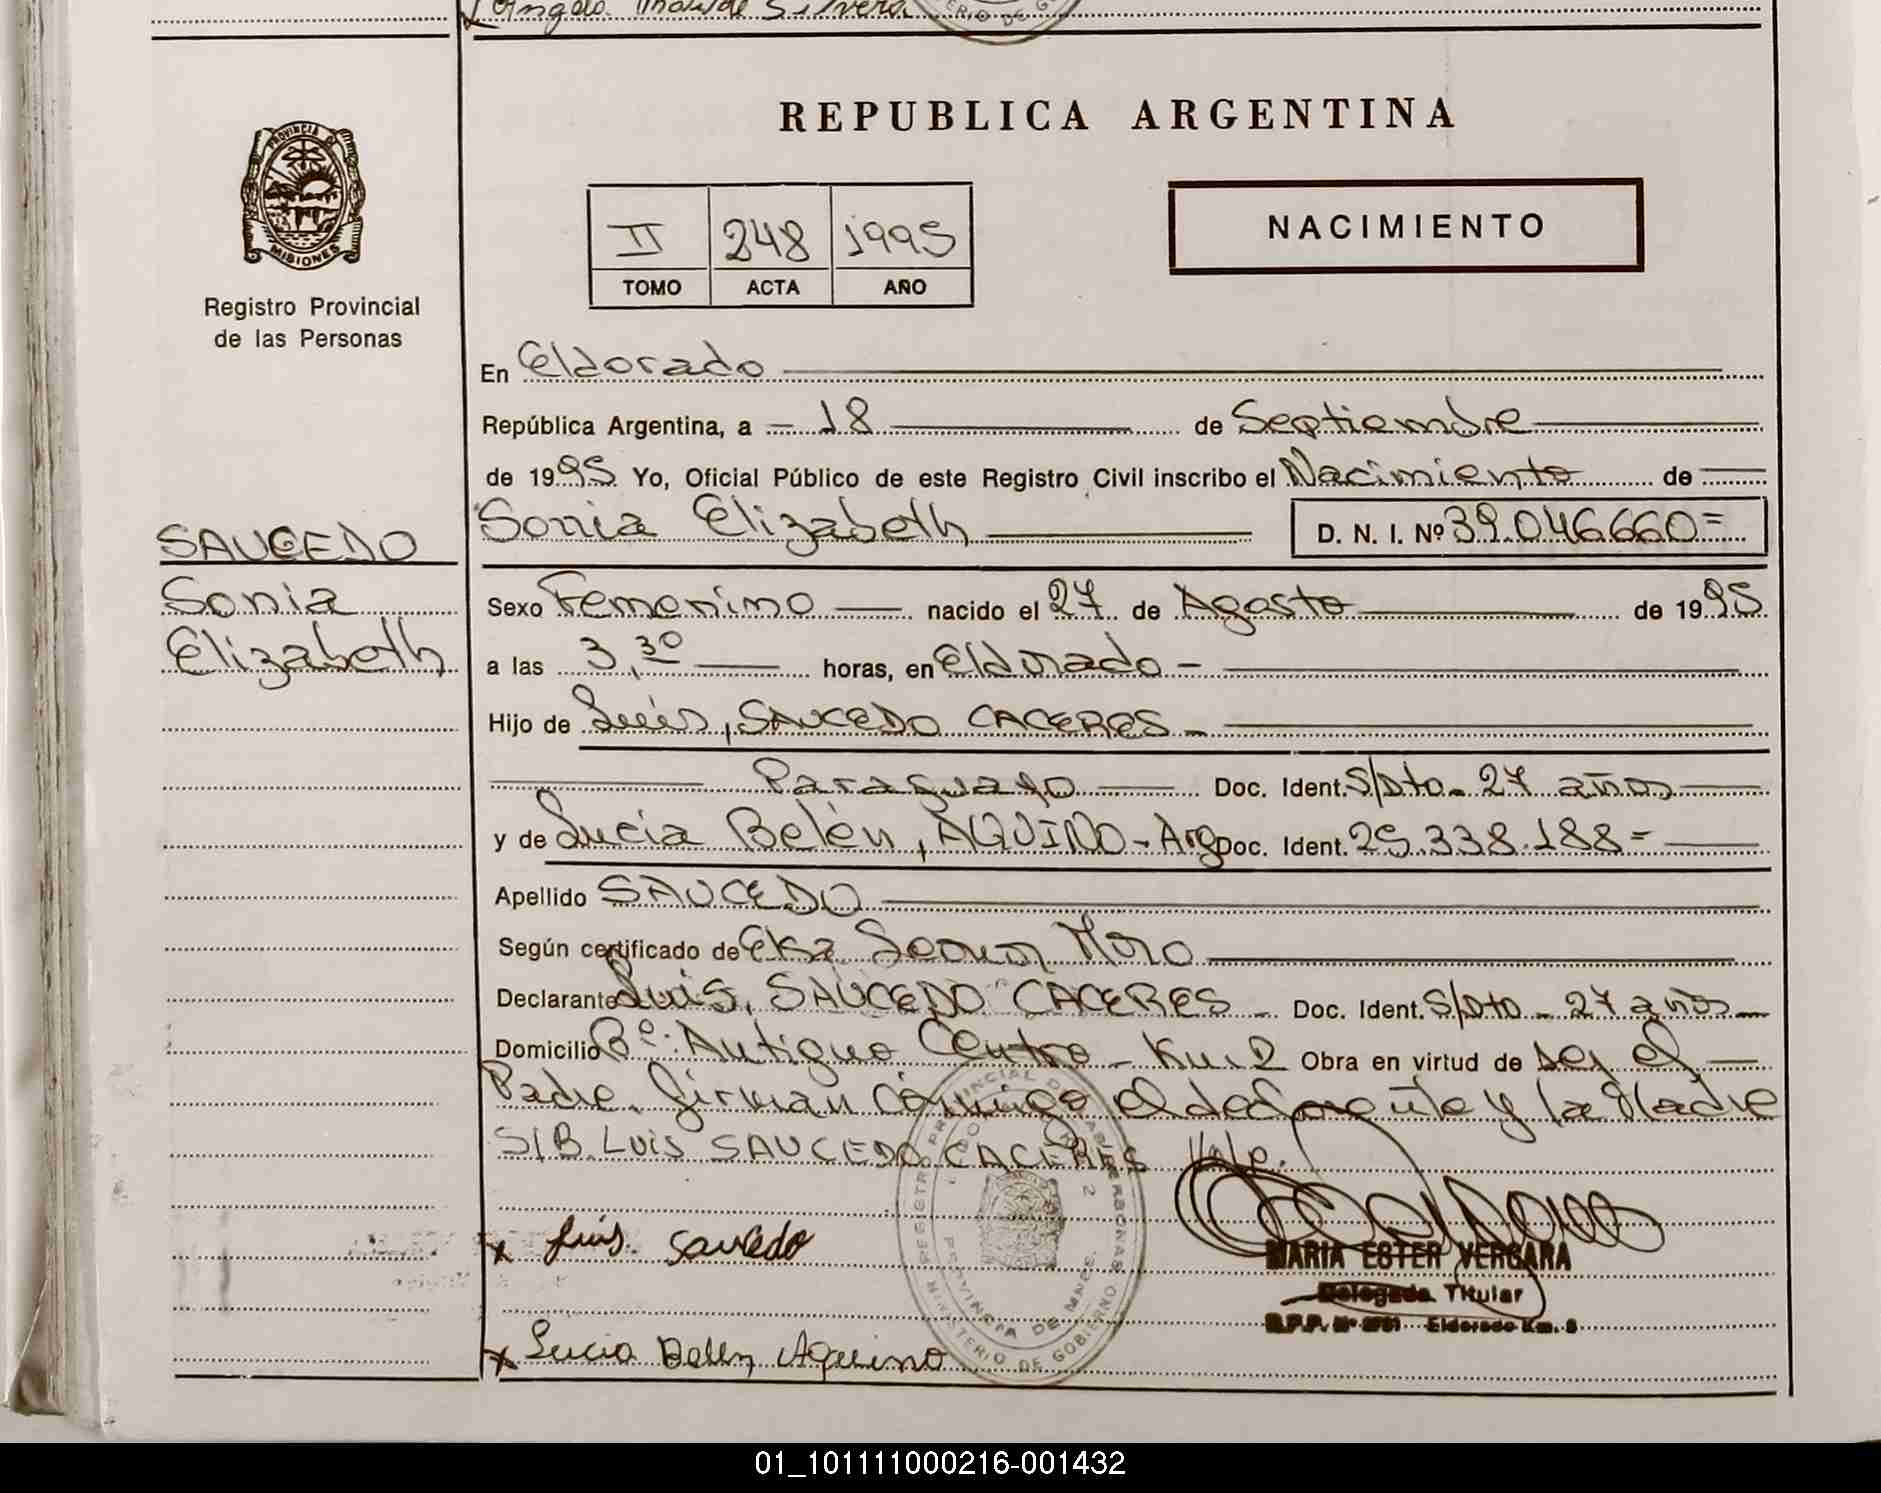 Angela Silvera
PROVINCIA DE
MISIONES
Registro Provincial
de las Personas
SAUCEDO
Sonia
Elizabeth
REPUBLICA ARGENTINA
NACIMIENTO
II 248 1995
TOMO ACTA AÑO
En Eldorado
República Argentina, a - 18 de Septiembre
de 1995 Yo, Oficial Público de este Registro Civil inscribo el Nacimiento de
Sonia Elizabeth D. N. I. Nº 39.046.660=
Sexo Femenino nacido el 27 de Agosto de 1995
a las 3,30 horas, en Eldorado -
Hijo de Luis, SAUCEDO CACERES -
Paraguayo Doc. Ident. S/Dto - 27 años
y de Lucia Belén, AQUINO - Arg Doc. Ident. 25.338.188=
Apellido SAUCEDO
Según certificado de Elsa Leonor Moro
Declarante Luis, SAUCEDO CACERES - Doc. Ident. S/Dto - 27 años -
Domicilio Bº: Antiguo Centro - Km 2 Obra en virtud de ser el
Padre. firman conmigo el declarante y la Madre
S/B. LUIS SAUCEDO CACERES Vale.
x Luis. Saucedo
MARIA ESTER VERGARA
Delegada Titular
R.P.P. Nº Eldorado Km.
x Lucia Belen Aquino
REGISTRO PROVINCIAL DE LAS PERSONAS
PROVINCIA DE MNES.
MINISTERIO DE GOBIERNO
01_101111000216-001432